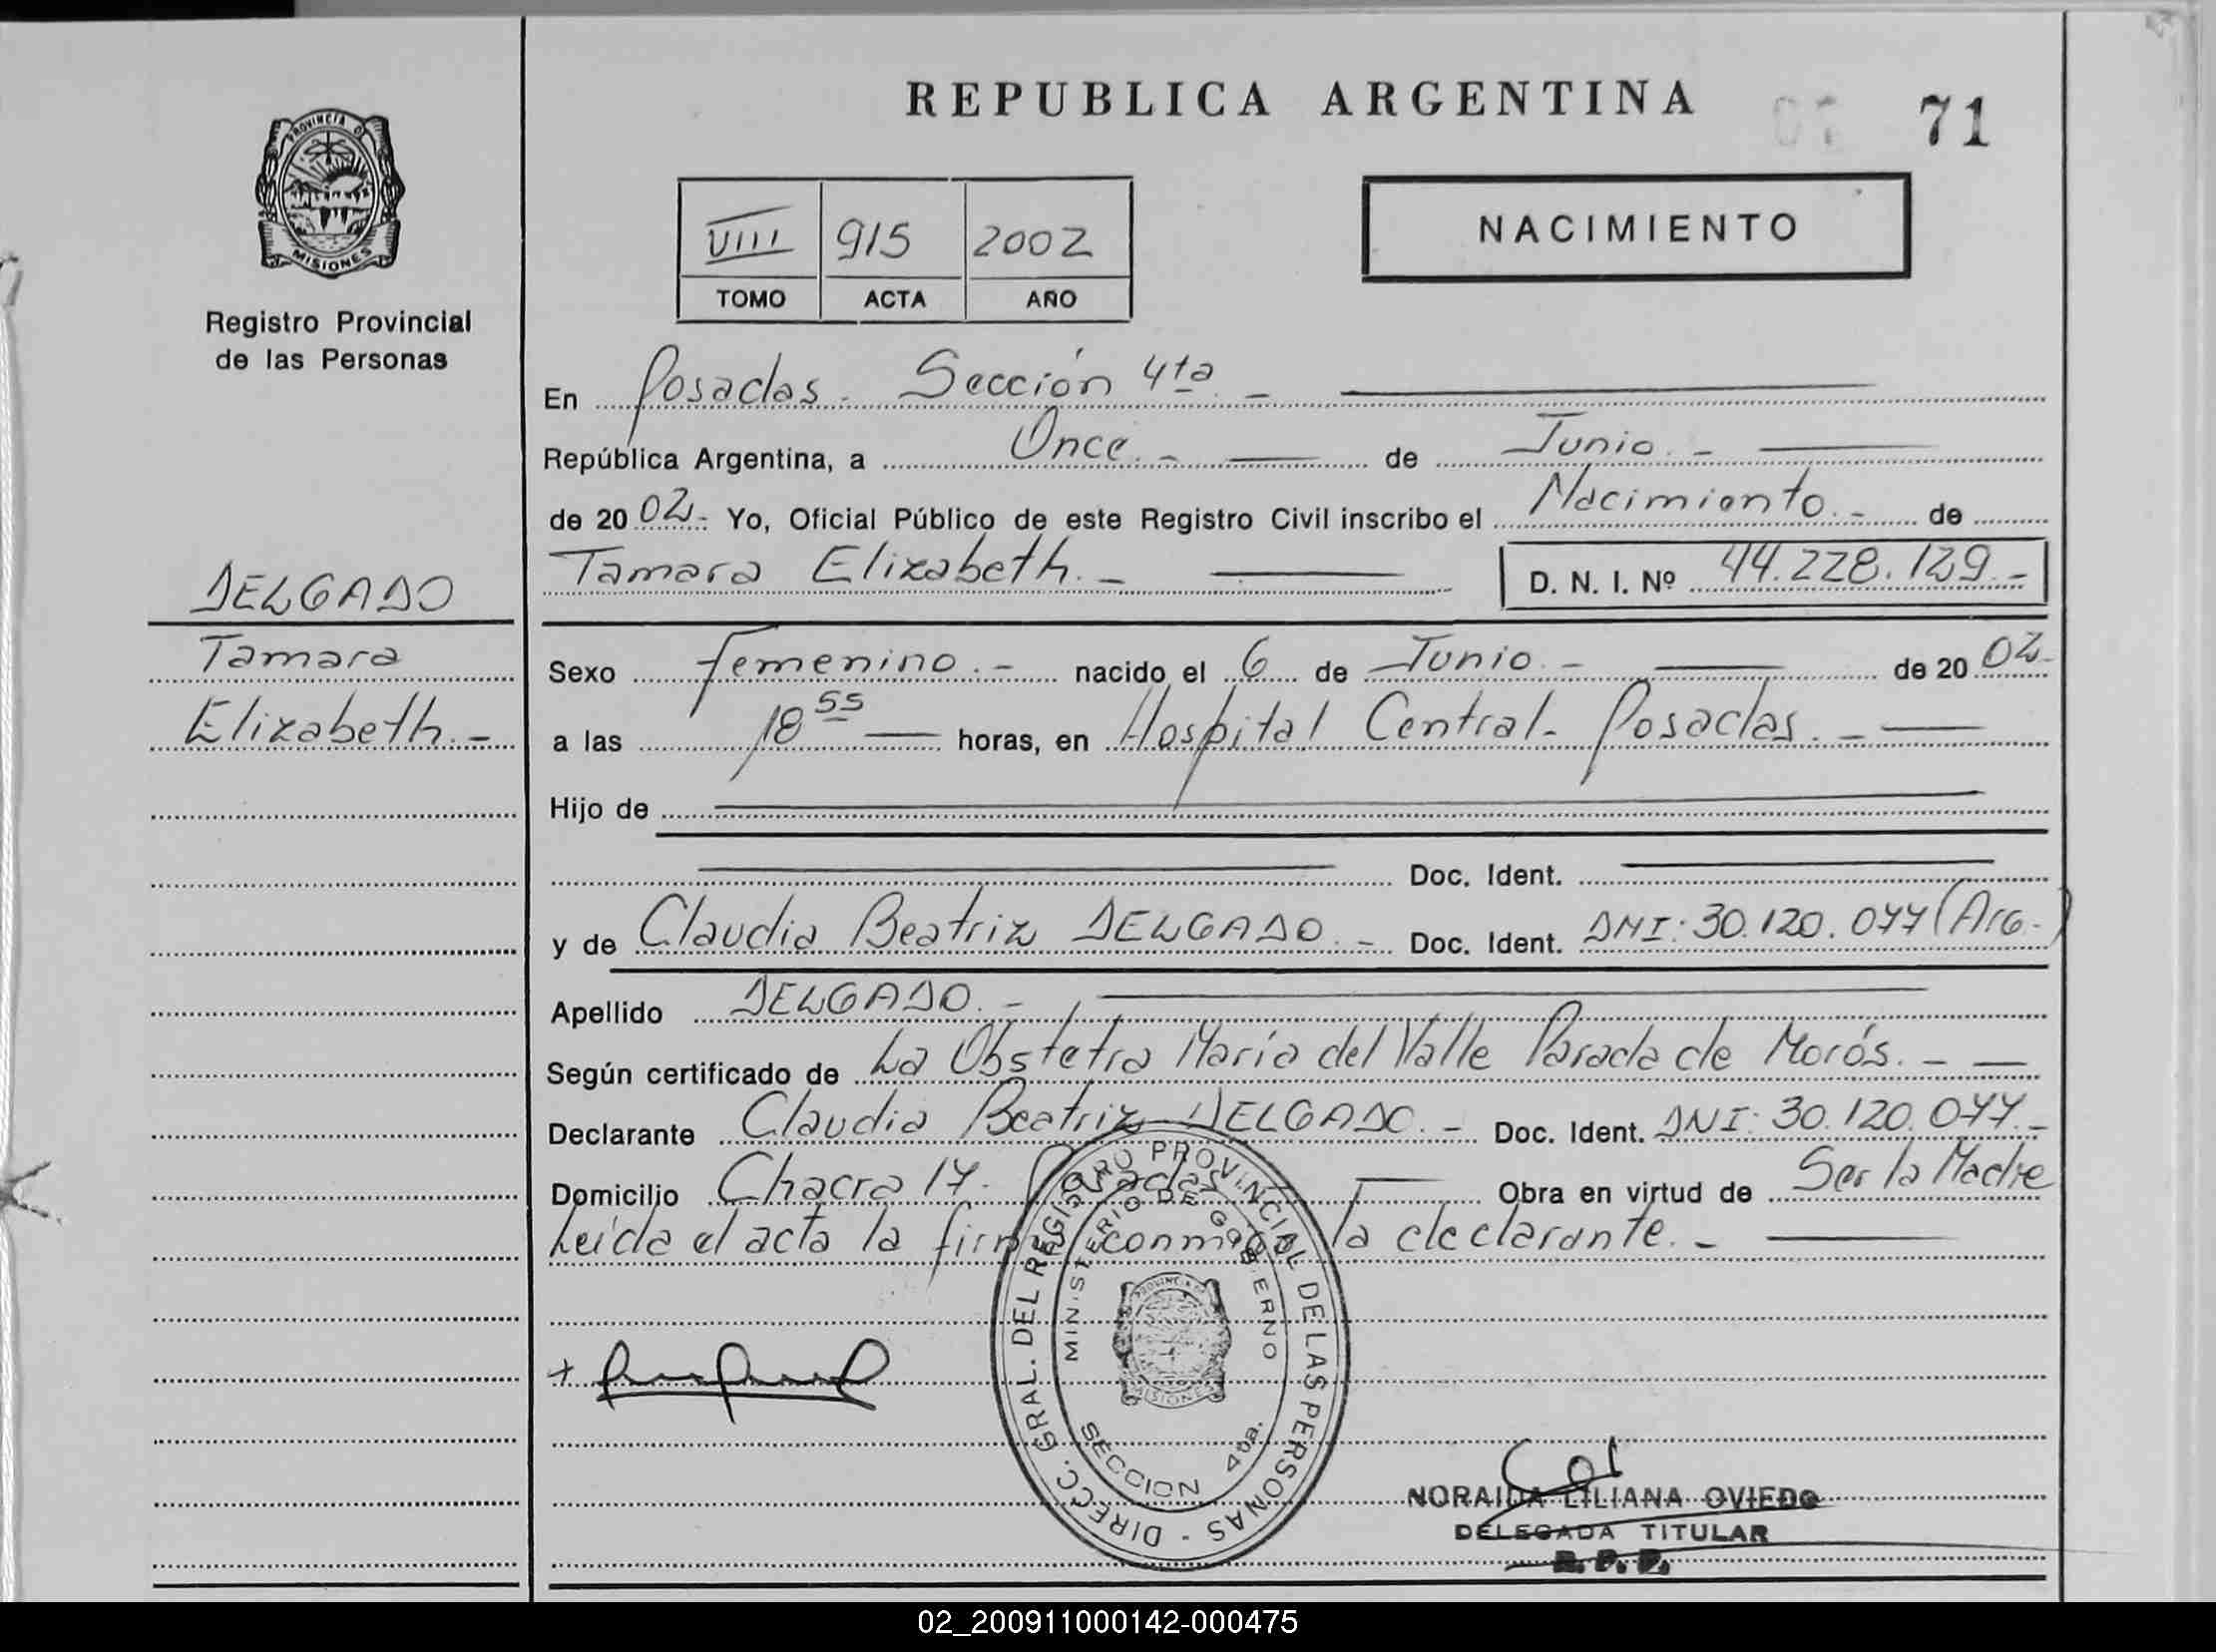 REPUBLICA ARGENTINA
71
PROVINCIA DE MISIONES
Registro Provincial
de las Personas
VIII 915 2002
TOMO ACTA AÑO
NACIMIENTO
En Posadas - Sección 4ta. -
República Argentina, a Once. - de Junio. -
de 2002.- Yo, Oficial Público de este Registro Civil inscribo el Nacimiento. - de
Tamara Elizabeth. - D. N. I. Nº 44.228.129.-
DELGADO
Tamara
Elizabeth. -
Sexo femenino. - nacido el 6 de Junio. - de 2002.-
a las 18 55 horas, en Hospital Central - Posadas. -
Hijo de
Doc. Ident.
y de Claudia Beatriz DELGADO. - Doc. Ident. DNI: 30.120.077 (Arg.)
Apellido DELGADO. -
Según certificado de La Obstetra María del Valle Parada de Morós. -
Declarante Claudia Beatriz DELGADO. - Doc. Ident. DNI: 30.120.077.-
Domicilio Chacra 17 - Posadas Obra en virtud de Ser la Madre
Leída el acta la firma conmigo la declarante. -
DIRECC. GRAL. DEL REGISTRO PROVINCIAL DE LAS PERSONAS -
MINISTERIO DE GOBIERNO
PROVINCIA DE MISIONES
SECCION 4ta.
NORAIDA LILIANA OVIEDO
DELEGADA TITULAR
R. P. P.
02_200911000142-000475